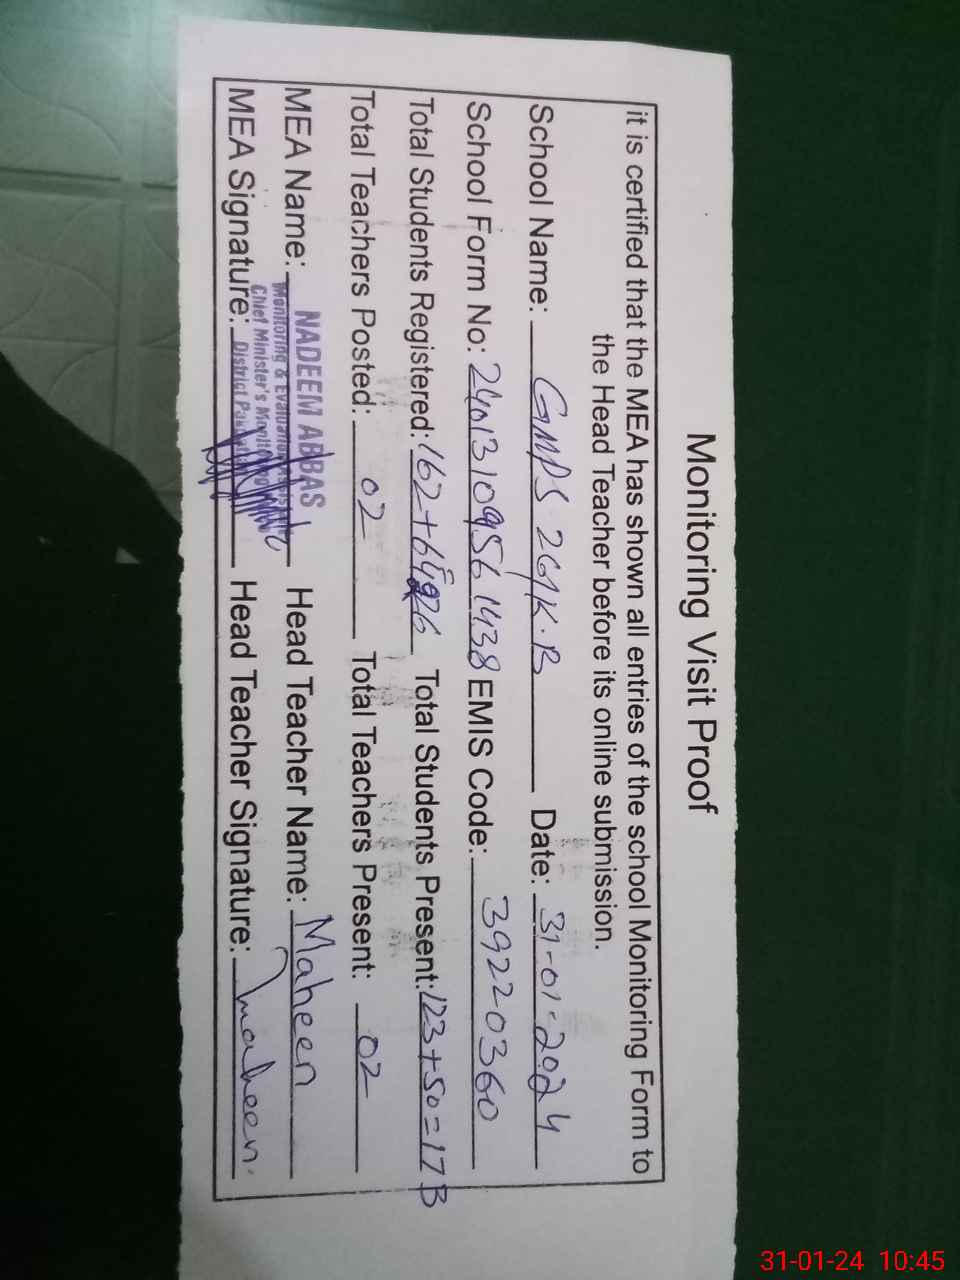 Monitoring Visit Proof
it is certified that the MEA has shown all entries of the school Monitoring Form to
the Head Teacher before its online submission.
School Name: GMPS 261K.B Date: 31-01-2024
School Form No: 2401310956 1438 EMIS Code: 39220360
Total Students Registered: 162+64 Total Students Present: 123+50=173
Total Teachers Posted: 02 Total Teachers Present: 02
MEA Name: NADEEM ABBAS Head Teacher Name: Maheen
Monitoring & Evaluation
Chief Minister's
MEA Signature: District Head Teacher Signature: Maheen.
31-01-24 10:45